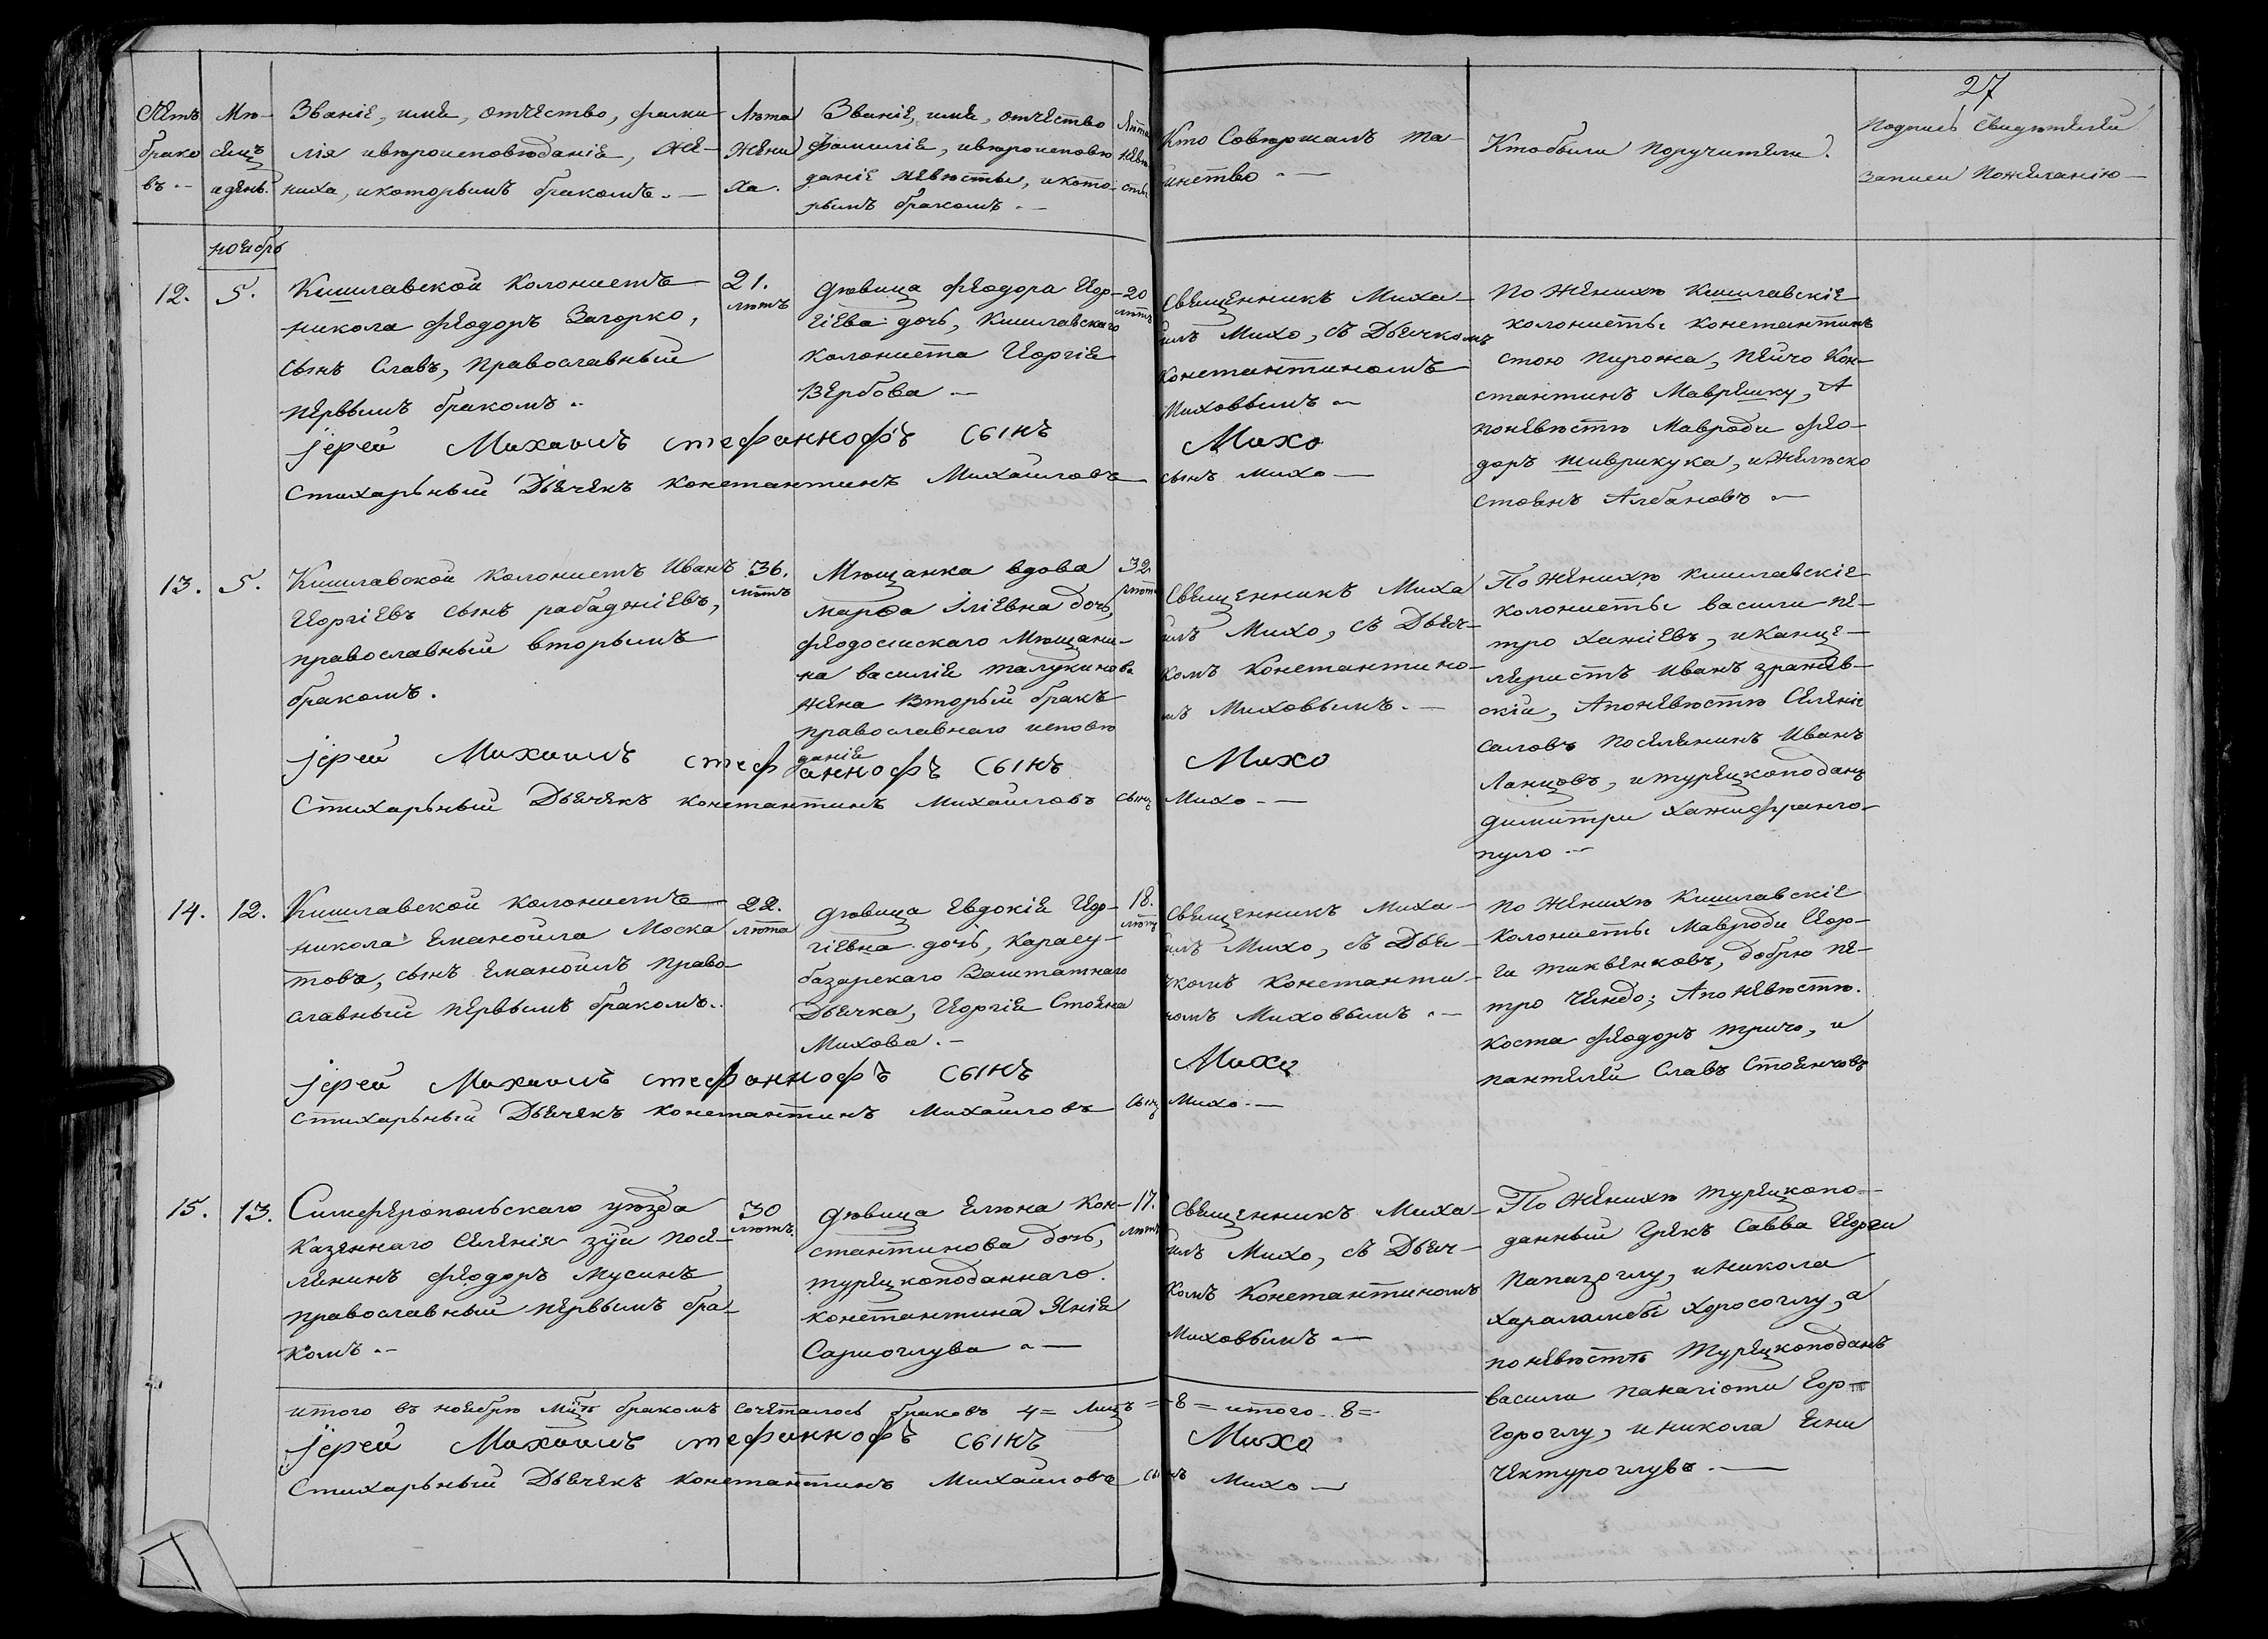 27
Счетъ
брако
въ.
Мѣ-
сяцъ
и день.
Званіе, имя, отчество, фами-
лія и вѣроисповѣданіе, же-
ниха, и которымъ бракомъ.
Лѣта
жени
ха.
Званіе, имя, отчество
фамилія, и вѣроисповѣ
даніе невѣсты, и кото-
рымъ бракомъ.
Лѣта
невѣ
сты
Кто совѣршалъ та-
инство
Кто были поручители.
Подпись свидѣтелей
записи по желанію
ноябрь
12.
5.
Кишлавской колонистъ
никола феодоръ Загорко,
сынъ Славъ, православный
первымъ бракомъ.
21.
лѣтъ
дѣвица феодора Геор-
гіева дочь, Кишлавскаго
колониста Георгія
Вербова
20
лѣтъ
священникъ Миха-
илъ Михо, съ Дьячкомъ
константиномъ
Миховымъ
По жениху Кишлавскіе
колонисты константинъ
стою пирожа, пейчо кон-
стантинъ Маврешку, А
по невѣсты Мавроди фео-
доръ шиврикука, и желѣско
стоянъ Албановъ
іерей Михаилъ стефаннофъ сынъ Михо
Стихарьный Дьячекъ константинъ Михайловъ сынъ Михо
13.
5.
Кишлавской колонистъ Иванъ
Георгіевъ сынъ рабаджіевъ,
православный вторымъ
бракомъ.
36.
лѣтъ
Мѣщанка вдова
марфа іліевна дочь,
феодосискаго Мѣщани-
на василія талукинова
жена вторый бракъ
православнаго исповѣ
данія
32.
лѣтъ
Священникъ Миха
илъ Михо, съ Дьяч-
комъ константино-
мъ Миховымъ.
По жениху кишлавскіе
колонисты васили пе-
тро хажіевъ, и канце-
ляристъ Иванъ зражев-
скій, А по невѣсты Селенія
саловъ поселянинъ Иванъ
Ланцовъ, и турецкоподанъ
димитри хажифранго-
пуло
іерей Михаилъ стефаннофъ сынъ Михо
Стихарьный Дьячекъ константинъ Михайловъ сынъ Михо
14.
12.
Кишлавской колонистъ
никола Еманоила Моска
товъ, сынъ Еманоилъ право
славный первымъ бракомъ.
22.
лѣта
дѣвица Евдокія Геор-
гіевна дочь, карасу-
базарскаго Заштатнаго
Дьячка, Георгія Стояна
Михова.
18.
лѣтъ
священникъ Миха-
илъ Михо, съ Дья-
чкомъ константи-
номъ Миховымъ
по жениху кишлавскіе
колонисты Мавроди Геор-
ги тиквенковъ, добрю пе-
тро Чиндо; А по невѣсты.
коста феодоръ тричо, и
пантелей Славъ Стоянчовъ
іерей Михаилъ стефаннофъ сынъ Михо
стихарьный Дьячекъ константинъ Михайловъ сынъ Михо
15.
13.
Симферопольскаго уѣзда
казеннаго селенія зуи посе-
лянинъ феодоръ мусинъ
православный первымъ бра-
комъ
30
лѣтъ
дѣвица Елѣна Кон-
стантинова дочь,
турецкоподаннаго
константина Янія
Сариоглува
17.
лѣтъ
Священникъ Миха-
илъ Михо, съ Дьяч-
комъ константиномъ
Миховымъ
По жениху турецкопо-
данный Грекъ Савва Георги
папазоглу, и никола
хараламбы хоросоглу, а
по невѣсты Турецкоподанъ
васили панагіоти Гор-
гороглу, и никола Яни
чектуроглувъ
итого въ ноябрѣ мцѣ бракомъ сочеталось браковъ 4= Лицъ =8= итого 8=
іерей Михаилъ стефаннофъ сынъ Михо
Стихарьный Дьячекъ константинъ Михайловъ сынъ Михо